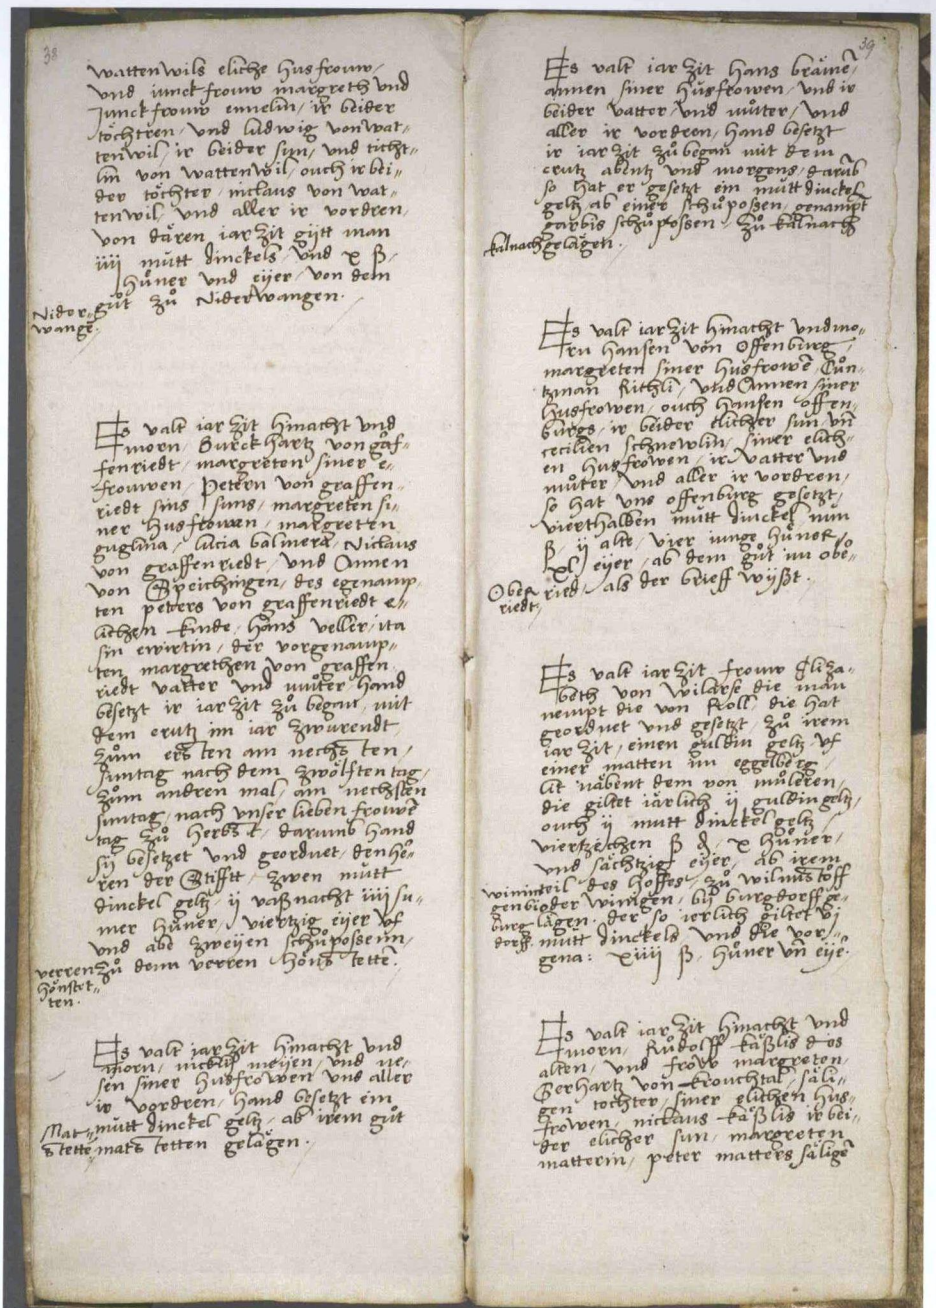 38
wattenwils eliche husfrouw /
und iunckfrouw margreth und
Junckfrouw ennelin / ir beider
töchtren / und ludwig von wat-
tenwil / ir beider sun / und ticht-
lin von wattenwil / ouch ir bei-
der töchter / niclaus von wat-
tenwil / und aller ir vordren /
von dären iarzit gytt man
iiij mutt dinckels / und x ß /
hůner und eyer / von dem
gůt zů Niderwangen.
Nider-
wangē.
Es valt iarzit hinacht und
morn / Burckhartz von gaf-
fenriedt / margreten siner e-
frouwen / Petern von graffen-
riedt sins suns / margreten si-
ner husfrowen / margreten
guglina / lucia balmera / Niclaus
von graffenriedt / und Annen
von Speichingen / des egenamp-
ten peters von graffenriedt e-
lichen kinde / Hans veller / ita
sin ewirtin / der vorgenamp-
ten margrethen von graffen-
riedt vatter und můter hand
besetzt ir iarzit zů began / mit
dem crutz im iar zwurendt /
zům ersten am nechsten /
suntag nach dem zwölften tag /
zům andren mal / am nechsten
suntag / nach unser lieben frouwē
tag zů herbst / darumb hand
sy besetzet und geordnet / den he-
ren der Stifft / zwen mutt
dinckel geltz / ij vaßnacht iiij su-
mer hůner / viertzig eyer uf
und abe zweyen schůpossenn /
zů denn verren hönstette.
verren
hönstet-
ten.
Es valt iarzit hinacht und
morn / nicklis meyen / und ne-
sen siner husfrowen und aller
ir vordren / hand besetzt ein
mutt dinckel geltz / ab irem gůt
matstetten gelägen.
Mat-
stettē
39
Es valt iarzit hans
annen siner husfrowen / und ir
beider vatter / und můter / und
aller ir vordren / hand besetzt
ir iarzit zů began mit dem
crutz abentz und morgens / darūb
so hat er gesetzt ein mutt dinckel
geltz ab einer schůpossen / genampt
garbis schůpossen / zů kalnach
gelägen.
kalnach
Es valt iarzit hinacht und mo-
rn hansen von Offenburg /
margreten siner husfrowē / Cůn-
tzman Rithli / und Annen siner
husfrowen / ouch hansen offen-
burgs / ir beider elicher sun / uñ
cecilien schnewlin / siner elich-
en husfrowen / ir vatter und
můter / und aller ir vordren /
so hat uns offenburg gesetzt /
vierthalben mutt dinckel / nün
ß / ij alte / vier iunge hůner /
xl eyer / ab dem gůt im obe-
ried / als der brieff wyßt.
Ober
riedt /
Es valt iarzit frouw Eliza-
beth von wilarse die man
nempt die von Roll / die hat
geordnet und gesetzt / zů irem
iarzit / einen guldin geltz uf
einer matten im eggelberg /
lit näbent dem von můleren /
die giltet iärlich ij guldin geltz /
ouch ij mutt dinckel geltz /
viertzechen ß ₰ / x hůner /
und sächtzig eyer / ab irem
teil des hoffes / zů wilmistorff
der winigen / by burgdorff ge-
lägen. der so ierlich giltet vj
mutt dinckels / und die vor-
gena: xiiij ß / hůner uñ eye.
winin-
gen bi
burg-
dorff.
Es valt iarzit hinacht und
morn / Růdolff käßlis des
alten / und frow margreten /
Gerhartz von krouchtal / säli-
gen tochter / siner elichen hus-
frowen / niclaus käßlis ir bei-
der elicher sun / margreten
matterin / peter matters säligē